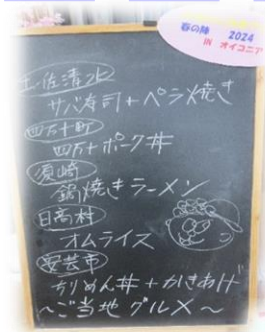 春の陣 2024
IN オイコニア
土佐清水
サバ寿司+ペラ焼き
四万十町
四万十ポーク丼
須崎
鍋焼きラーメン
日高村
オムライス
安芸市
ちりめん丼+かきあげ
～ご当地グルメ～